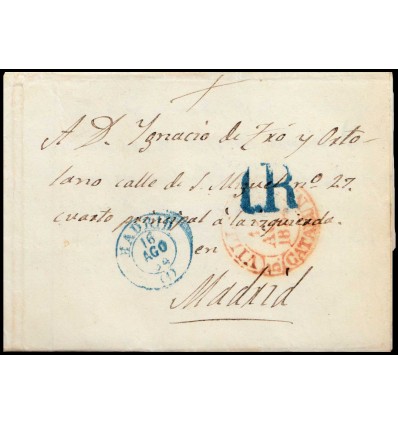 A D. Ygnacio de Zró y Orto-
lano calle de S. Miguel nº 27.
cuarto principal à la izquierda.
en
Madrid
1R
MADRID
16
AGO
(1)
CATA